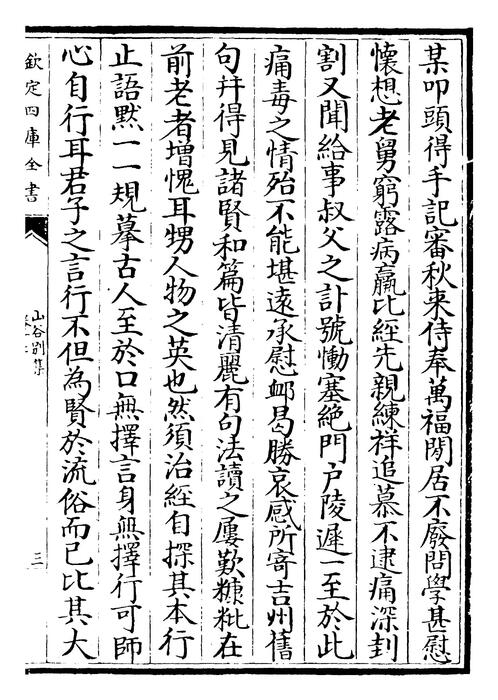 某叩頭得手記審秋来侍奉萬福閒居不廢問學甚慰
懐想老舅窮露病羸比經先親練祥追慕不逮痛深刲
割又聞給事叔父之訃號慟塞絶門户陵遲一至於此
痛毒之情殆不能堪逺承慰䘏曷勝哀感所寄吉州舊
句幷得見諸賢和篇皆清麗有句法讀之屢歎糠粃在
前老者增愧耳甥人物之英也然須治經自探其本行
止語黙一一規摹古人至於口無擇言身無擇行可師
心自行耳君子之言行不但為賢於流俗而已比其大
欽定四庫全書
山谷别集
三